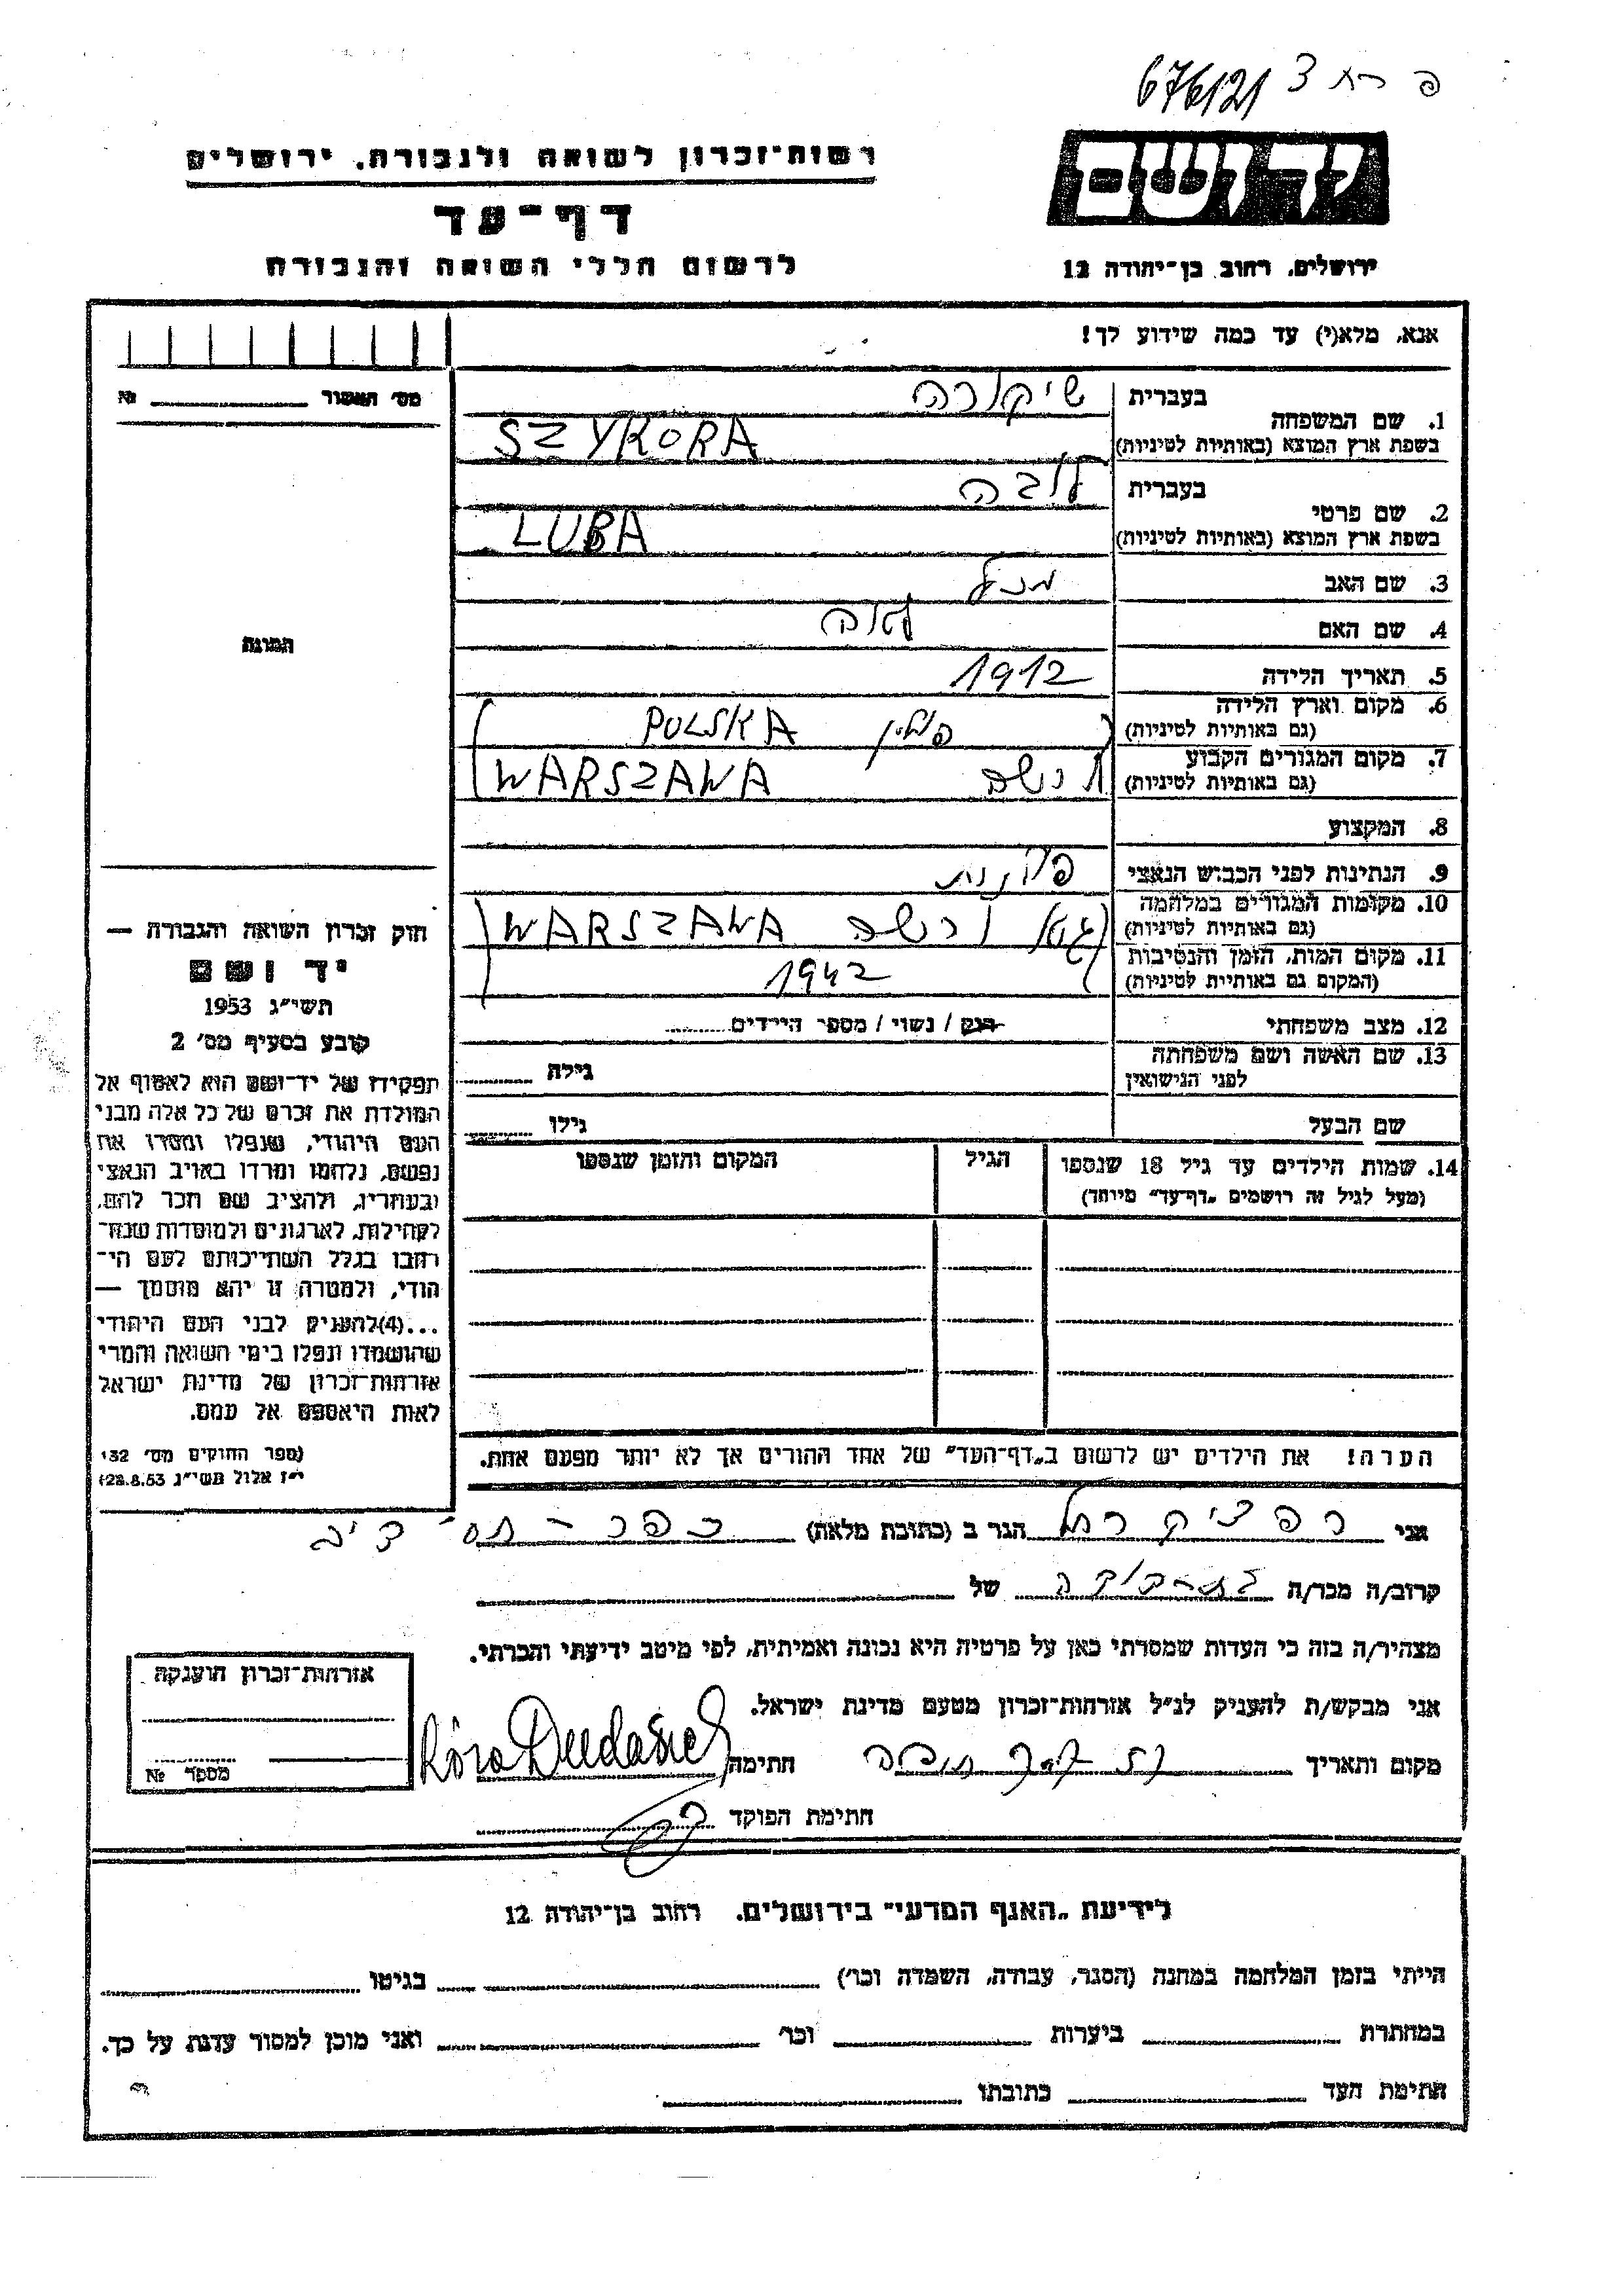 676121
רשות-זכרון לשואה ולגבורה, ירושלים
יד ושם
דף-עד
לרשום חללי השואה והגבורה
ירושלים, רחוב בן-יהודה 12
אנא, מלא(י) עד כמה שידוע לך!
מס' האשור № 
בעברית שיקורה
1. שם המשפחה
בשפת ארץ המוצא (באותיות לטיניות) SZYKORA
בעברית לובה
2. שם פרטי
בשפת ארץ המוצא (באותיות לטיניות) LUBA
3. שם האב
4. שם האם לאה
התמונה
5. תאריך הלידה 1912
6. מקום וארץ הלידה פולין POLSKA
(גם באותיות לטיניות)
7. מקום המגורים הקבוע ורשה WARSZAWA
(גם באותיות לטיניות)
8. המקצוע
9. הנתינות לפני הכבוש הנאצי פולנית
10. מקומות המגורים במלחמה גטו ורשה WARSZAWA
(גם באותיות לטיניות)
11. מקום המות, הזמן והנסיבות 1942
(המקום גם באותיות לטיניות)
12. מצב משפחתי רווק / נשוי / מספר הילדים
13. שם האשה ושם משפחתה גילה
לפני הנישואין
שם הבעל גילו
14. שמות הילדים עד גיל 18 שנספו הגיל המקום והזמן שנספו
(מעל לגיל זה רושמים "דף-עד" מיוחד)
הערה! את הילדים יש לרשום ב"דף-העד" של אחד ההורים אך לא יותר מפעם אחת.
חוק זכרון השואה והגבורה —
יד ושם
תשי"ג 1953
קובע בסעיף מס' 2
תפקידו של יד-ושם הוא לאסוף אל
המולדת את זכרם של כל אלה מבני
העם היהודי, שנפלו ומסרו את
נפשם, נלחמו ומרדו באויב הנאצי
ובעוזריו, ולהציב שם וזכר להם,
לקהילות, לארגונים ולמוסדות שנח-
רבו בגלל השתייכותם לעם הי-
הודי, ולמטרה זו יהא מוסמך —
...(4) להעניק לבני העם היהודי
שהושמדו ונפלו בימי השואה והמרי
אזרחות-זכרון של מדינת ישראל
לאות היאספם אל עמם.
(ספר החוקים מס' 132
י"ז אלול תשי"ג 28.8.53)
אני רפציק רחל הגר ב (כתובת מלאה) כפר-
קרוב/ה מכר/ה של
מצהיר/ה בזה כי העדות שמסרתי כאן על פרטיה היא נכונה ואמיתית, לפי מיטב ידיעתי והכרתי.
אני מבקש/ת להעניק לנ"ל אזרחות-זכרון מטעם מדינת ישראל.
מקום ותאריך חתימה
חתימת הפוקד
אזרחות-זכרון הוענקה
מספר №
לידיעת "האגף המדעי" בירושלים, רחוב בן-יהודה 12
הייתי בזמן המלחמה במחנה (הסגר, עבודה, השמדה וכו') בגיטו
במחתרת ביערות וכו' ואני מוכן למסור עדות על כך.
חתימת העד כתובתו